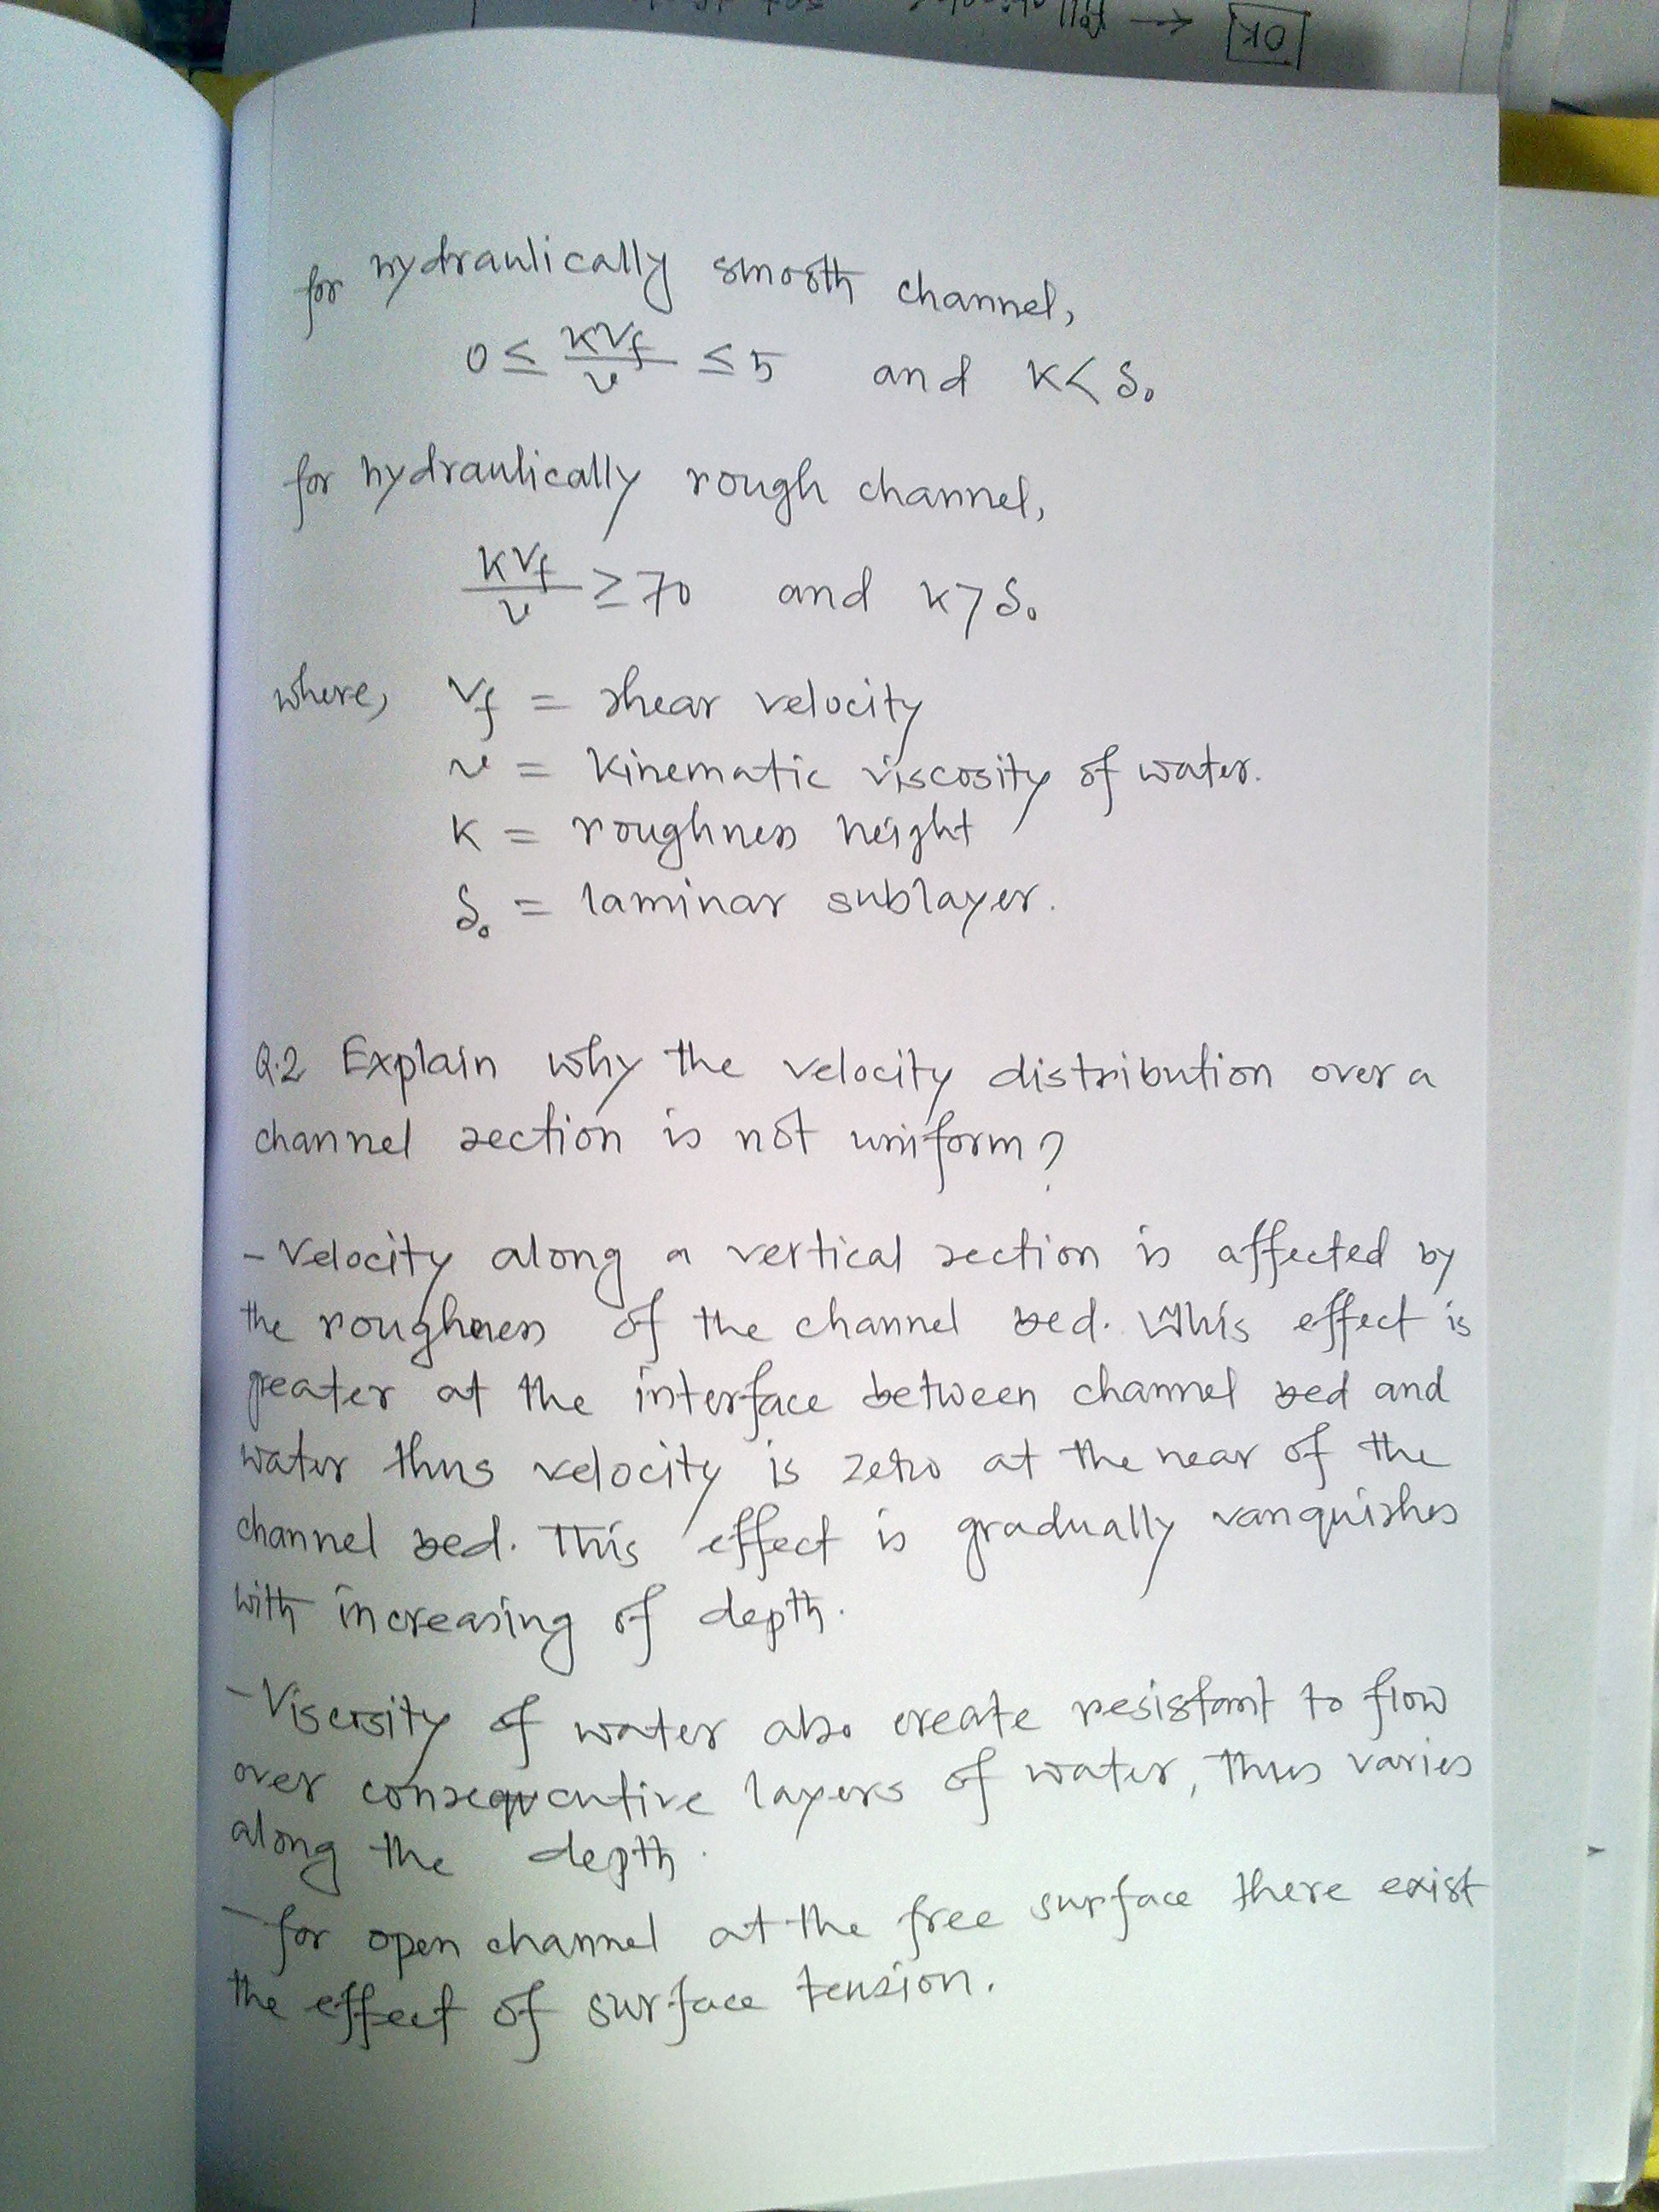 OK
for hydraulically smooth channel,
0 ≤ KVf/ν ≤ 5 and K < δ₀
for hydraulically rough channel,
KVf/ν ≥ 70 and K > δ₀
where, Vf = shear velocity
ν = Kinematic viscosity of water.
K = roughness height
δ₀ = laminar sublayer.
Q.2 Explain why the velocity distribution over a
channel section is not uniform?
- Velocity along a vertical section is affected by
the roughness of the channel bed. This effect is
greater at the interface between channel bed and
water thus velocity is zero at the near of the
channel bed. This effect is gradually vanquishes
with increasing of depth.
- Viscosity of water also create resistant to flow
over consequentive layers of water, thus varies
along the depth.
- for open channel at the free surface there exist
the effect of surface tension.